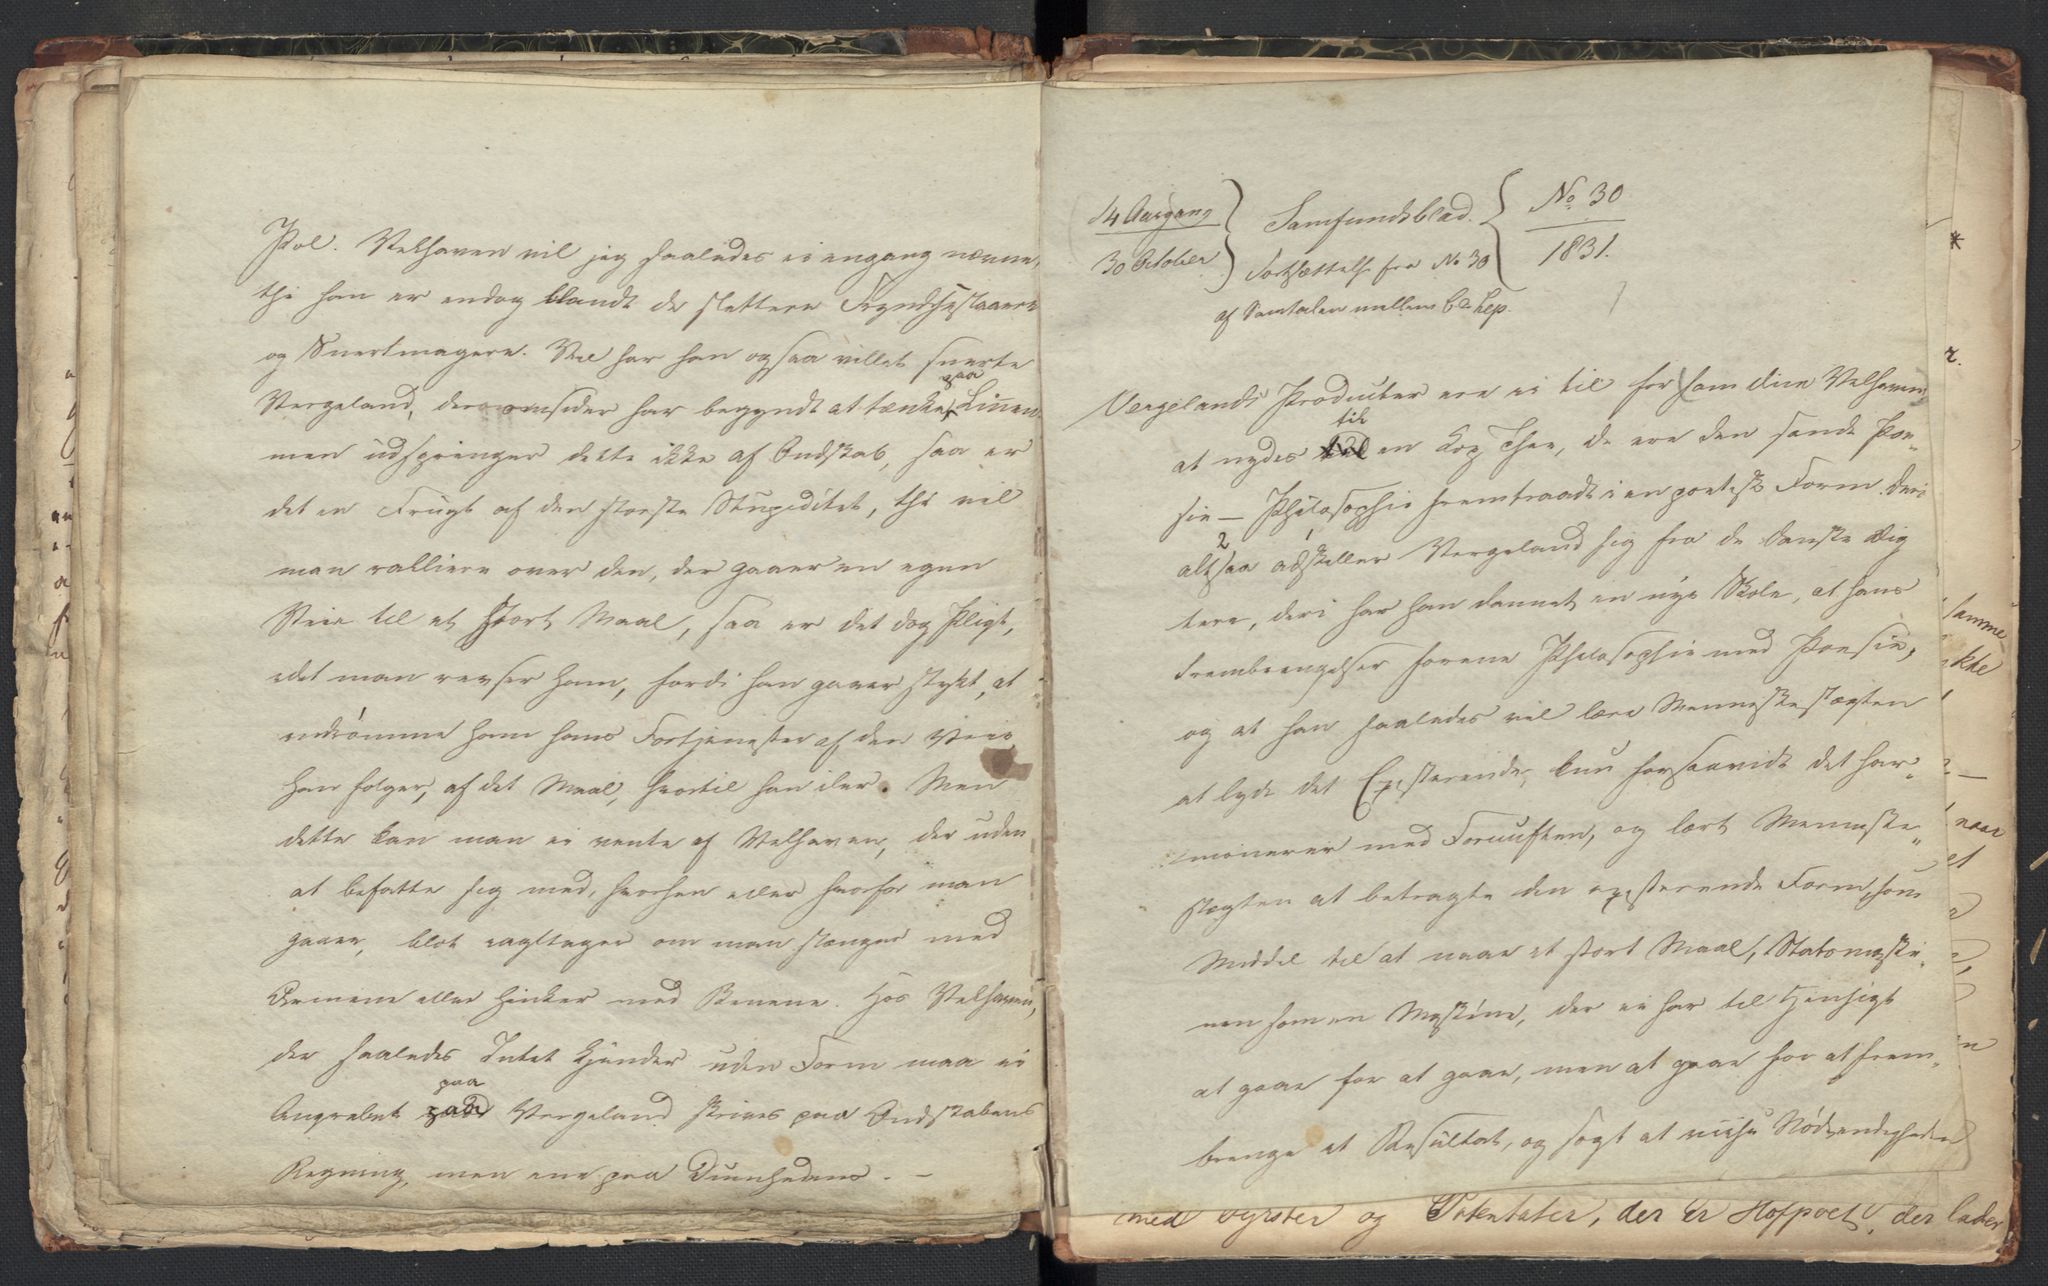 Pol. Velhaven vil jeg saaledes ei engang nævne,
thi han er endog blandt de slettere
og Snertmagere. Vel har han ogsaa villet snerte
paa
Vergeland, der omsider har begyndt at tænke Linnen
men udspringer dette ikke af Ondskab, saa er
det en Frugt af den største Stupiditet, thi vil
man ralliere over den, der gaaer en egen
Veie til et stort Maal, saa er det dog Pligt,
idet man revser ham, fordi han gaaer stykt, at
indrömme ham hans Fortjenester af den Veie
han følger, af det Maal, hvortil han iler. Men
dette kan man ei vente af Velhaven, der uden
at befatte sig med, hvorhen eller hvorfor man
gaaer, blot iagttager om man slænger med
Armene eller hinker med Benene. Hos Velhaven,
der saaledes Intet kjender uden Form maa ei
paa
Angrebet Vergeland skrives paa Ondskabens
Regning, men ene paa Dumhedens. –
14 Aargang
30 October
Samfundsblad.
Fortsættelse fra No 30
af Samtalen mellem C & Lep.
No 30
1831.
Vergelands Producter ere ei til for som dine Velhavens
til
at nydes en Kop Thee, de ere den sande Poe„
sie — Philosophie fremtraadt i en poetisk Form. Deri
2 1
altsaa adskiller Vergeland sig fra de danske Dig
tere, deri har han dannet en nye Skole, at hans
Frembringelser forene Philosophie med Poesie,
og at han saaledes vil lære Menneskeslægten
at lyde det Existerende, kun forsaavidt det har„
monerer med Fornuften, og lært Menneske„
slægten at betragte den existerende Form, som
Middel til at naae et stort Maal, Statsmaski„
nen som en Maskine, der ei har til Hensigt
at gaae for at gaae, men at gaae for at frem„
bringe et Resultat, og søgt at viise Nödvendigheden
med Fyrster og Potentater, der er Hofpoet, der lader
samme
kke
naar
et